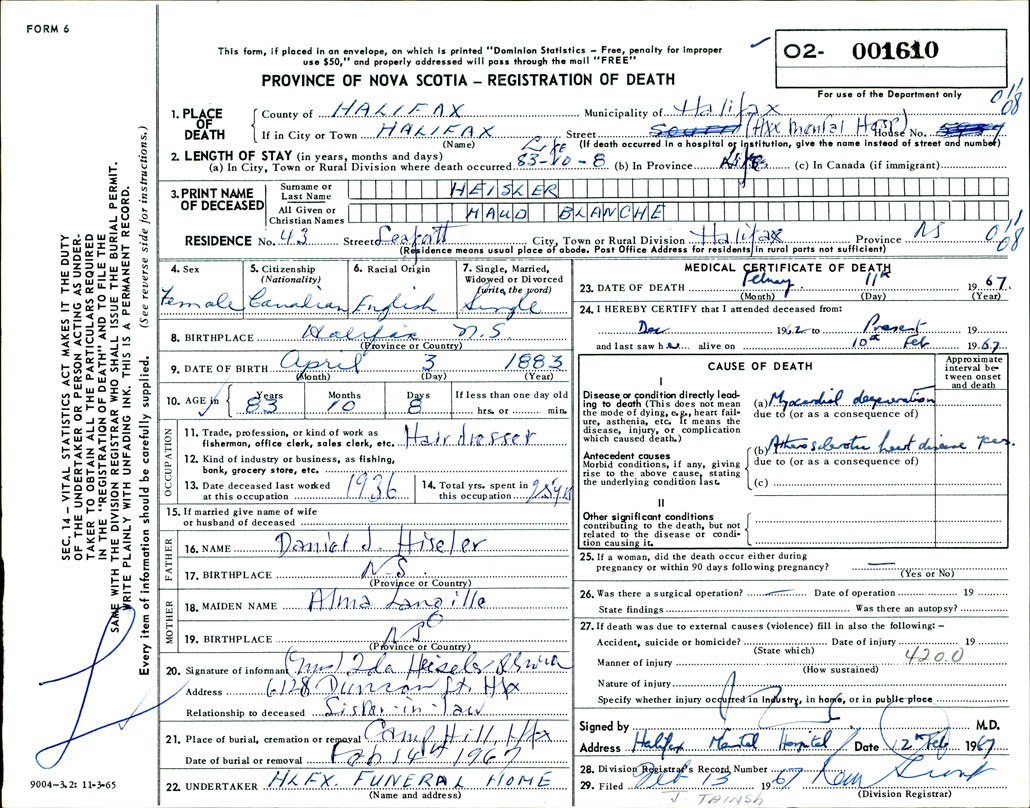 FORM 6
This form, if placed in an envelope, on which is printed "Dominion Statistics – Free, penalty for improper
use $50," and properly addressed will pass through the mail "FREE"
O2- 001610
PROVINCE OF NOVA SCOTIA – REGISTRATION OF DEATH
For use of the Department only
1. PLACE OF DEATH
County of HALIFAX Municipality of Halifax
If in City or Town HALIFAX Street (Hfx Mental Hosp) House No.
(Name) (If death occurred in a hospital or institution, give the name instead of street and number)
2. LENGTH OF STAY (in years, months and days) Life
(a) In City, Town or Rural Division where death occurred 83-10-8 (b) In Province Life (c) In Canada (if immigrant)
3. PRINT NAME OF DECEASED
Surname or Last Name HEISLER
All Given or Christian Names MAUD BLANCHE
RESIDENCE No. 43 Street City, Town or Rural Division Halifax Province NS
(Residence means usual place of abode. Post Office Address for residents in rural parts not sufficient)
4. Sex Female
5. Citizenship (Nationality) Canadian
6. Racial Origin English
7. Single, Married, Widowed or Divorced (write the word) Single
8. BIRTHPLACE Halifax N.S.
(Province or Country)
9. DATE OF BIRTH April 3 1883
(Month) (Day) (Year)
10. AGE in Years 83 Months 10 Days 8 If less than one day old hrs. or min.
OCCUPATION
11. Trade, profession, or kind of work as fisherman, office clerk, sales clerk, etc. Hairdresser
12. Kind of industry or business, as fishing, bank, grocery store, etc.
13. Date deceased last worked at this occupation 1936
14. Total yrs. spent in this occupation 25 yrs
15. If married give name of wife or husband of deceased
FATHER
16. NAME Daniel J. Hiseler
17. BIRTHPLACE N.S.
(Province or Country)
MOTHER
18. MAIDEN NAME Alma Langille
19. BIRTHPLACE NS
(Province or Country)
20. Signature of informant (Mrs) Ida Heisler
Address 6128 Duncan St. Hfx
Relationship to deceased Sister-in-law
21. Place of burial, cremation or removal Camp Hill, Hfx
Date of burial or removal Feb 14th 1967
22. UNDERTAKER HLFX. FUNERAL HOME
(Name and address)
MEDICAL CERTIFICATE OF DEATH
23. DATE OF DEATH February 11th 1967
(Month) (Day) (Year)
24. I HEREBY CERTIFY that I attended deceased from:
Dec 1962 to Present 19
and last saw her alive on 10th Feb 1967
CAUSE OF DEATH
Approximate interval between onset and death
I
Disease or condition directly leading to death (This does not mean the mode of dying, e.g., heart failure, asthenia, etc. It means the disease, injury, or complication which caused death.)
(a) Myocardial degeneration
due to (or as a consequence of)
Antecedent causes
Morbid conditions, if any, giving rise to the above cause, stating the underlying condition last.
(b) Atherosclerotic heart disease yes.
due to (or as a consequence of)
(c)
II
Other significant conditions
contributing to the death, but not related to the disease or condition causing it.
25. If a woman, did the death occur either during pregnancy or within 90 days following pregnancy? —
(Yes or No)
26. Was there a surgical operation? — Date of operation 19
State findings Was there an autopsy?
27. If death was due to external causes (violence) fill in also the following: –
Accident, suicide or homicide? Date of injury 19
(State which)
Manner of injury 420.0
(How sustained)
Nature of injury
Specify whether injury occurred in Industry, in home, or in public place
Signed by M.D.
Address Halifax Mental Hospital Date 12th Feb 1967
28. Division Registrar's Record Number
29. Filed Feb 13 1967
(Division Registrar)
J. TAINSH
SEC. 14 – VITAL STATISTICS ACT MAKES IT THE DUTY
OF THE UNDERTAKER OR PERSON ACTING AS UNDER-
TAKER TO OBTAIN ALL THE PARTICULARS REQUIRED
IN THE "REGISTRATION OF DEATH" AND TO FILE THE
SAME WITH THE DIVISION REGISTRAR WHO SHALL ISSUE THE BURIAL PERMIT.
WRITE PLAINLY WITH UNFADING INK. THIS IS A PERMANENT RECORD.
Every item of information should be carefully supplied. (See reverse side for instructions.)
9004-3.2: 11-3-65